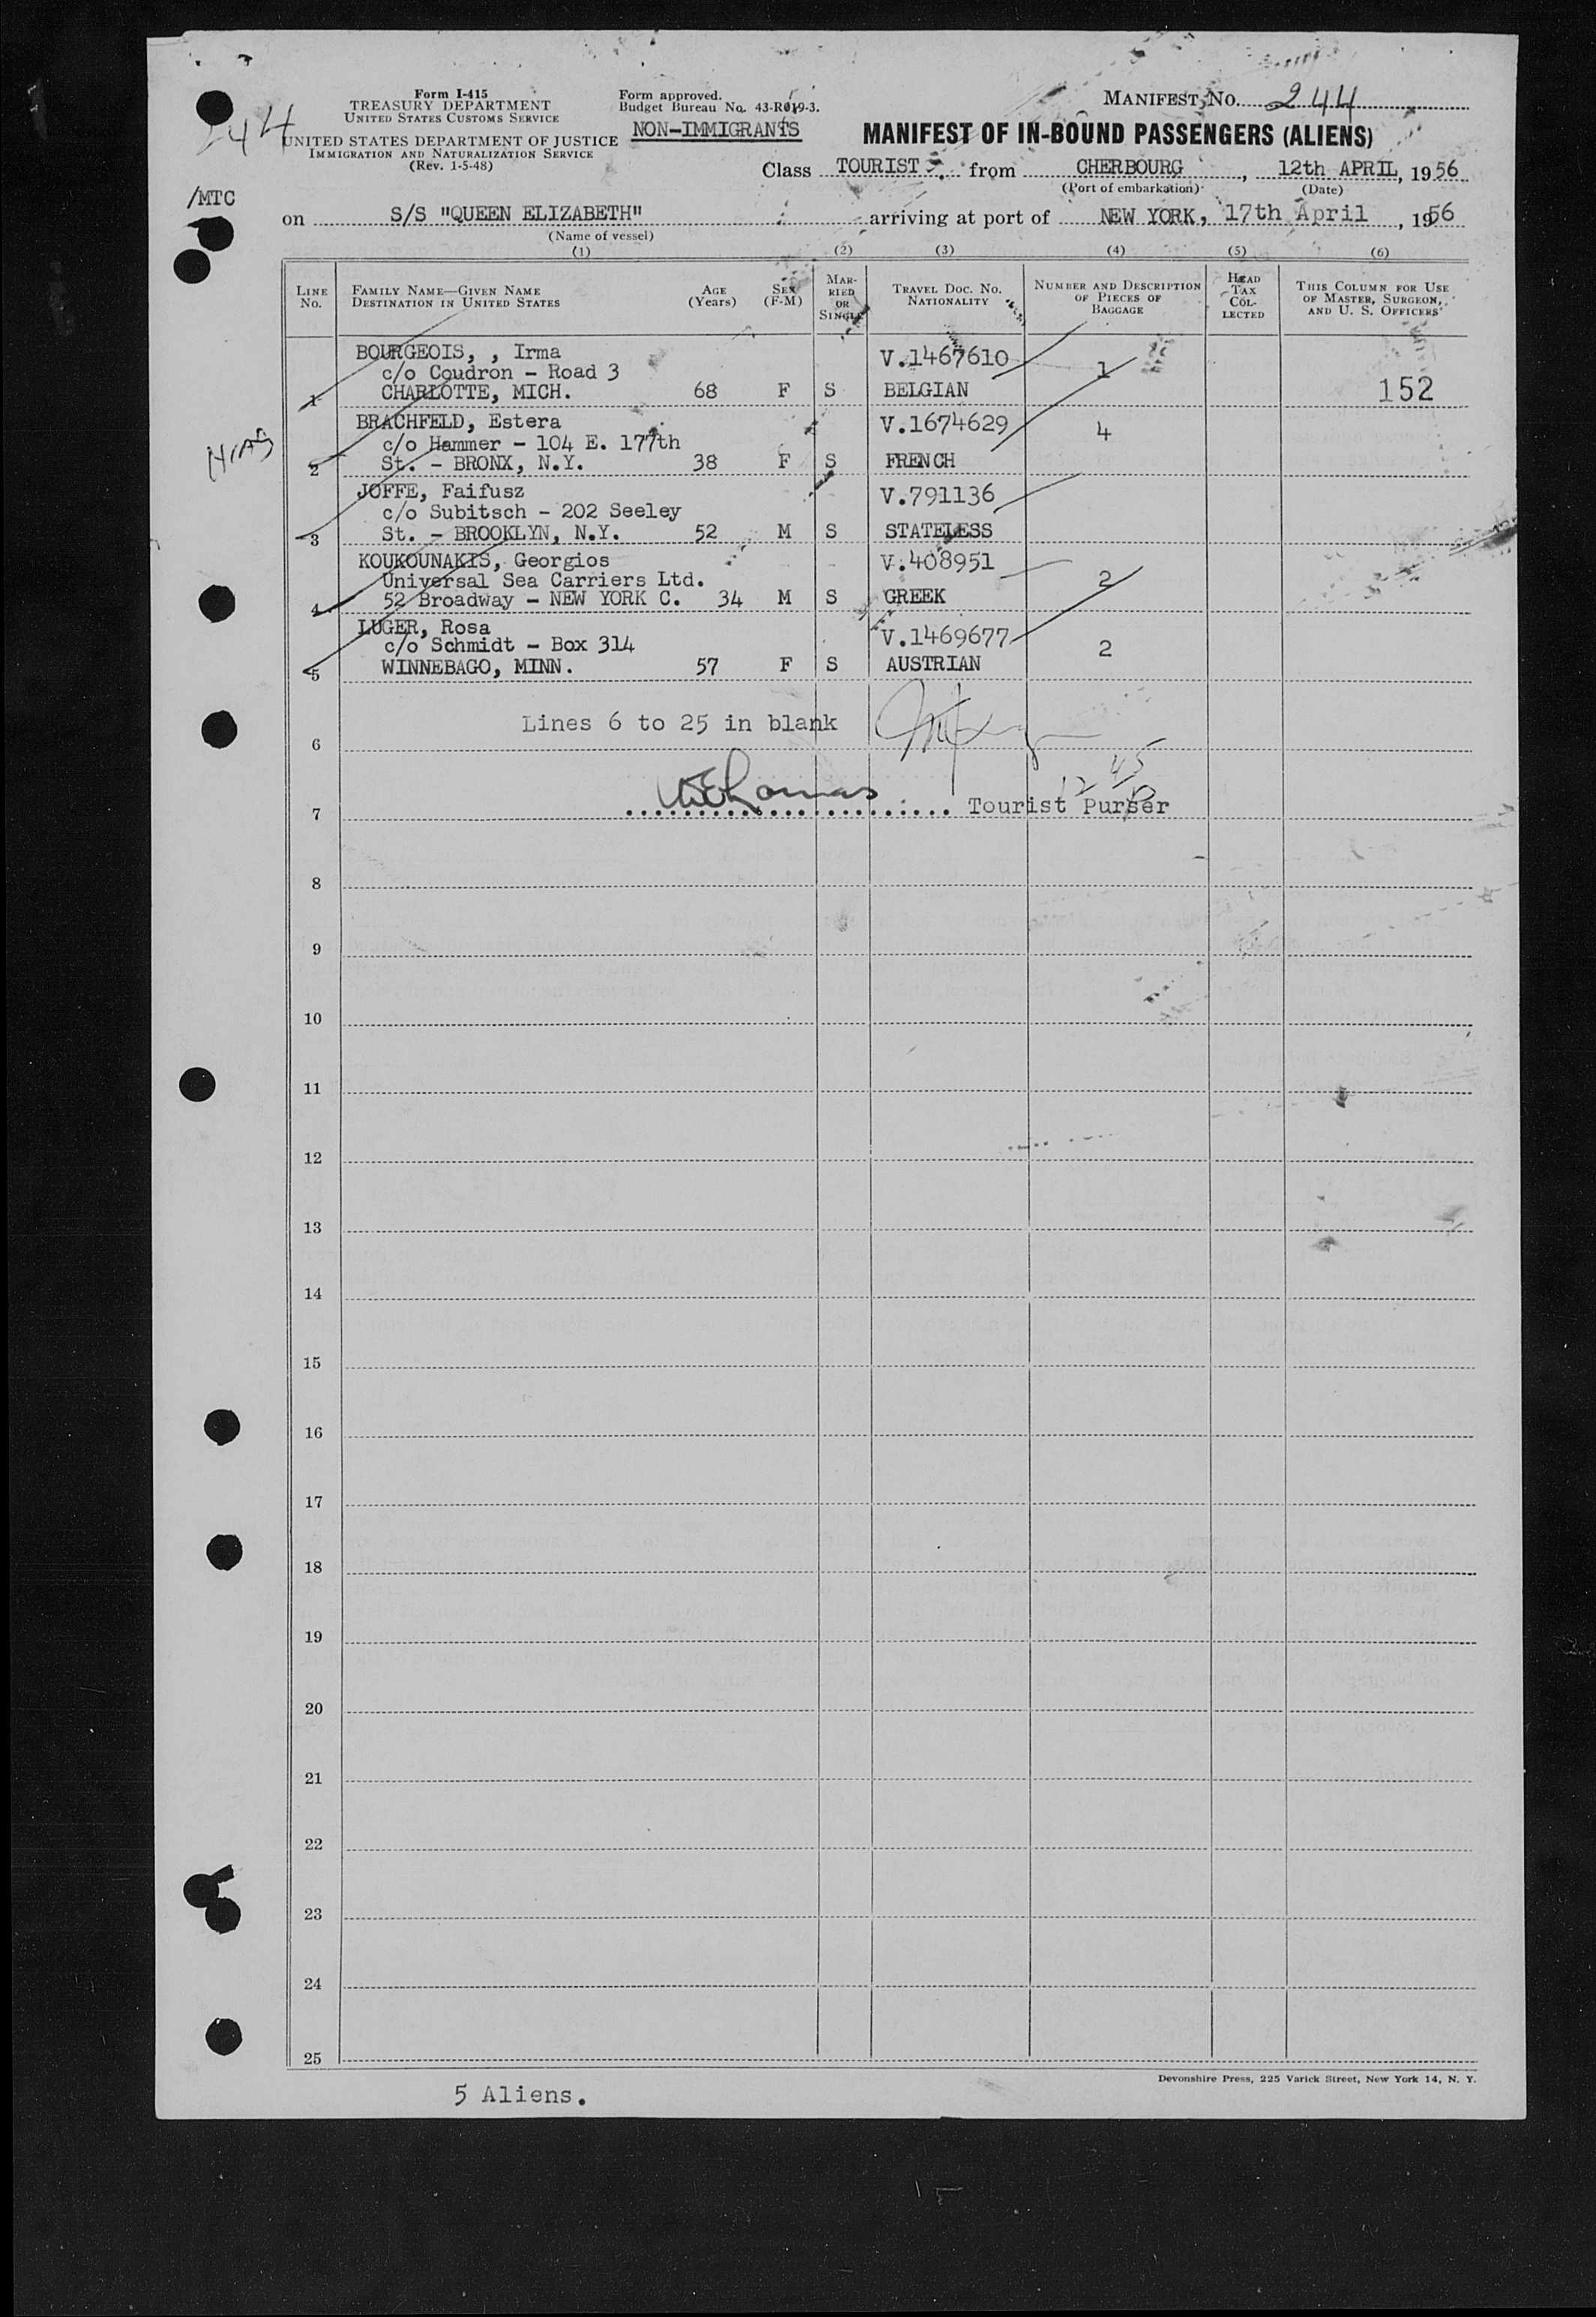 Form I-415
TREASURY DEPARTMENT
UNITED STATES CUSTOMS SERVICE
UNITED STATES DEPARTMENT OF JUSTICE
IMMIGRATION AND NATURALIZATION SERVICE
(Rev. 1-5-48)
Form approved.
Budget Bureau No. 43-R019-3.
NON-IMMIGRANTS
MANIFEST NO. 244
MANIFEST OF IN-BOUND PASSENGERS (ALIENS)
244
Class TOURIST from CHERBOURG, 12th APRIL, 1956
(Port of embarkation) (Date)
/MTC
on S/S "QUEEN ELIZABETH" arriving at port of NEW YORK, 17th April, 1956
(Name of vessel)
(1) (2) (3) (4) (5) (6)
LINE NO. FAMILY NAME—GIVEN NAME DESTINATION IN UNITED STATES AGE (Years) SEX (F-M) MARRIED OR SINGLE TRAVEL DOC. NO. NATIONALITY NUMBER AND DESCRIPTION OF PIECES OF BAGGAGE HEAD TAX COLLECTED THIS COLUMN FOR USE OF MASTER, SURGEON, AND U. S. OFFICERS
BOURGEOIS, , Irma V.1467610
c/o Coudron - Road 3 1
1 CHARLOTTE, MICH. 68 F S BELGIAN 152
BRACHFELD, Estera V.1674629 4
HIAS
c/o Hammer - 104 E. 177th
2 St. - BRONX, N.Y. 38 F S FRENCH
JOFFE, Faifusz V.791136
c/o Subitsch - 202 Seeley
3 St. - BROOKLYN, N.Y. 52 M S STATELESS
KOUKOUNAKIS, Georgios V.408951
Universal Sea Carriers Ltd. 2
4 52 Broadway - NEW YORK C. 34 M S GREEK
LUGER, Rosa V.1469677
c/o Schmidt - Box 314 2
5 WINNEBAGO, MINN. 57 F S AUSTRIAN
Lines 6 to 25 in blank
6
7 Tourist Purser
8
9
10
11
12
13
14
15
16
17
18
19
20
21
22
23
24
25
Devonshire Press, 225 Varick Street, New York 14, N. Y.
5 Aliens.